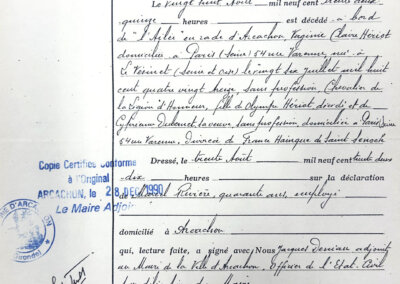 Le vingt huit Août mil neuf cent trente deux
quinze heures est décédé à bord
de "l'Ailée" en rade d'Arcachon Virginie Claire Hériot
domiciliée à Paris (Seine) 54 rue Varenne, née à
Le Vésinet (Seine et Oise) le vingt six juillet mil huit
cent quatre vingt dix, sans profession, Chevalier de
la Légion d'Honneur, fille d'Olympe Hériot décédé et de
Cyprienne Dubernet, sa veuve, sans profession domiciliée à Paris
54 rue Varenne, divorcée de François Haincque de Saint Senoch
Dressé, le trente Août mil neuf cent trente deux
dix heures sur la déclaration
de Marcel Rivière, quarante ans, employé
domicilié à Arcachon
qui, lecture faite, a signé avec Nous Jacques adjoint
au Maire de la Ville d'Arcachon, Officier de l'Etat-Civil
par délégation du Maire
Copie Certifiée conforme
à l'Original
ARCACHON, le 28 DEC 1990
Le Maire Adjoint
D'ARCACHON
Gironde